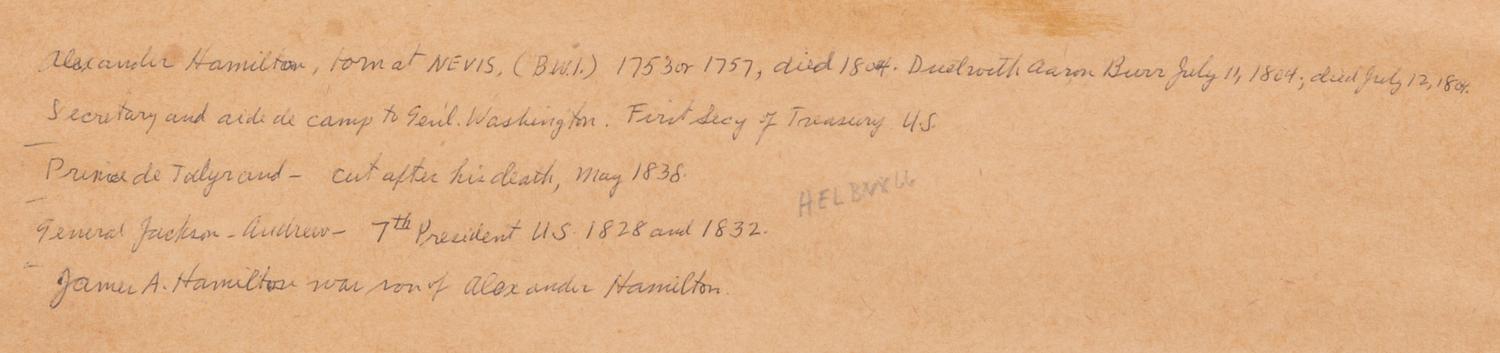 Alexander Hamilton, born at NEVIS, (B.W.I.) 1753 or 1757, died 1804. Duel with Aaron Burr July 11, 1804; died July 12, 1804.
Secretary and aide de camp to Genl. Washington. First Secy of Treasury U.S.
Prince de Talyrand - cut after his death, May 1838.
General Jackson - Andrew - 7th President U.S. 1828 and 1832.
James A. Hamilton was son of Alexander Hamilton.